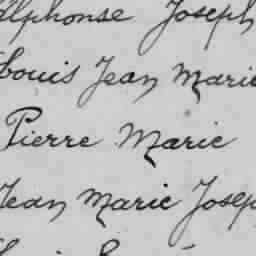 Alphonse Joseph
Louis Jean Marie
Pierre Marie
Jean Marie Joseph